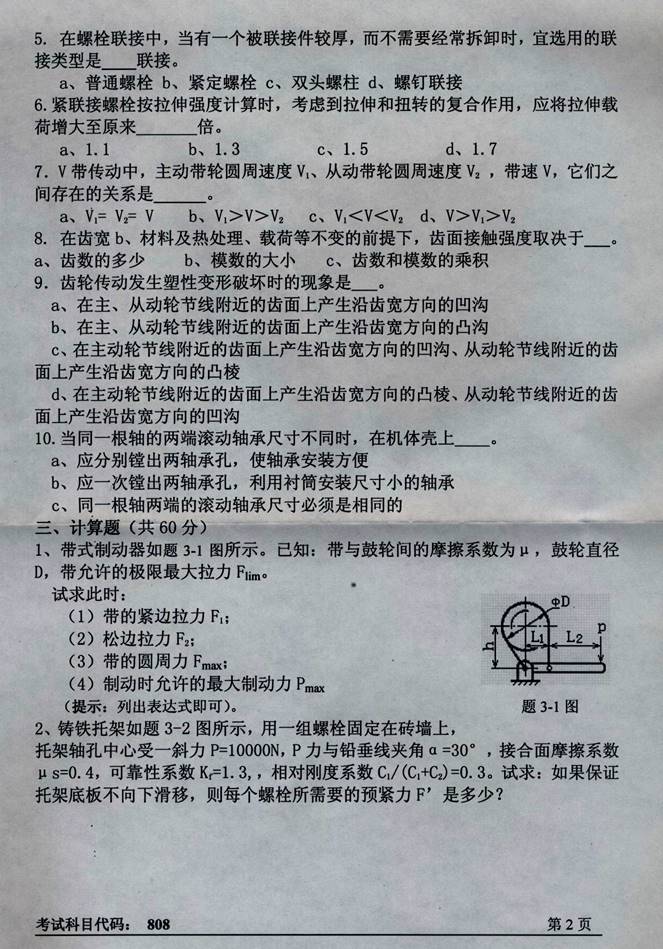 5. 在螺栓联接中，当有一个被联接件较厚，而不需要经常拆卸时，宜选用的联
接类型是____联接。
a、普通螺栓 b、紧定螺栓 c、双头螺柱 d、螺钉联接
6.紧联接螺栓按拉伸强度计算时，考虑到拉伸和扭转的复合作用，应将拉伸载
荷增大至原来_______倍。
a、1.1 b、1.3 c、1.5 d、1.7
7．V 带传动中，主动带轮圆周速度 V₁、从动带轮圆周速度 V₂ ，带速 V，它们之
间存在的关系是______。
a、V₁= V₂= V b、V₁＞V＞V₂ c、V₁＜V＜V₂ d、V＞V₁＞V₂
8. 在齿宽 b、材料及热处理、载荷等不变的前提下，齿面接触强度取决于___。
a、齿数的多少 b、模数的大小 c、齿数和模数的乘积
9．齿轮传动发生塑性变形破坏时的现象是___。
a、在主、从动轮节线附近的齿面上产生沿齿宽方向的凹沟
b、在主、从动轮节线附近的齿面上产生沿齿宽方向的凸沟
c、在主动轮节线附近的齿面上产生沿齿宽方向的凹沟、从动轮节线附近的齿
面上产生沿齿宽方向的凸棱
d、在主动轮节线附近的齿面上产生沿齿宽方向的凸棱、从动轮节线附近的齿
面上产生沿齿宽方向的凹沟
10.当同一根轴的两端滚动轴承尺寸不同时，在机体壳上____。
a、应分别镗出两轴承孔，使轴承安装方便
b、应一次镗出两轴承孔，利用衬筒安装尺寸小的轴承
c、同一根轴两端的滚动轴承尺寸必须是相同的
三、计算题（共 60 分）
1、带式制动器如题 3-1 图所示。已知：带与鼓轮间的摩擦系数为μ，鼓轮直径
D，带允许的极限最大拉力 Flim。
试求此时：
（1）带的紧边拉力 F₁；
（2）松边拉力 F₂；
（3）带的圆周力 Fmax；
（4）制动时允许的最大制动力 Pmax
（提示：列出表达式即可）。
ΦD
p
L1 L2
h
题 3-1 图
2、铸铁托架如题 3-2 图所示，用一组螺栓固定在砖墙上，
托架轴孔中心受一斜力 P=10000N，P 力与铅垂线夹角α=30°，接合面摩擦系数
μs=0.4，可靠性系数 Kf=1.3,，相对刚度系数 C₁/(C₁+C₂)=0.3。试求：如果保证
托架底板不向下滑移，则每个螺栓所需要的预紧力 F’是多少？
考试科目代码： 808
第 2 页